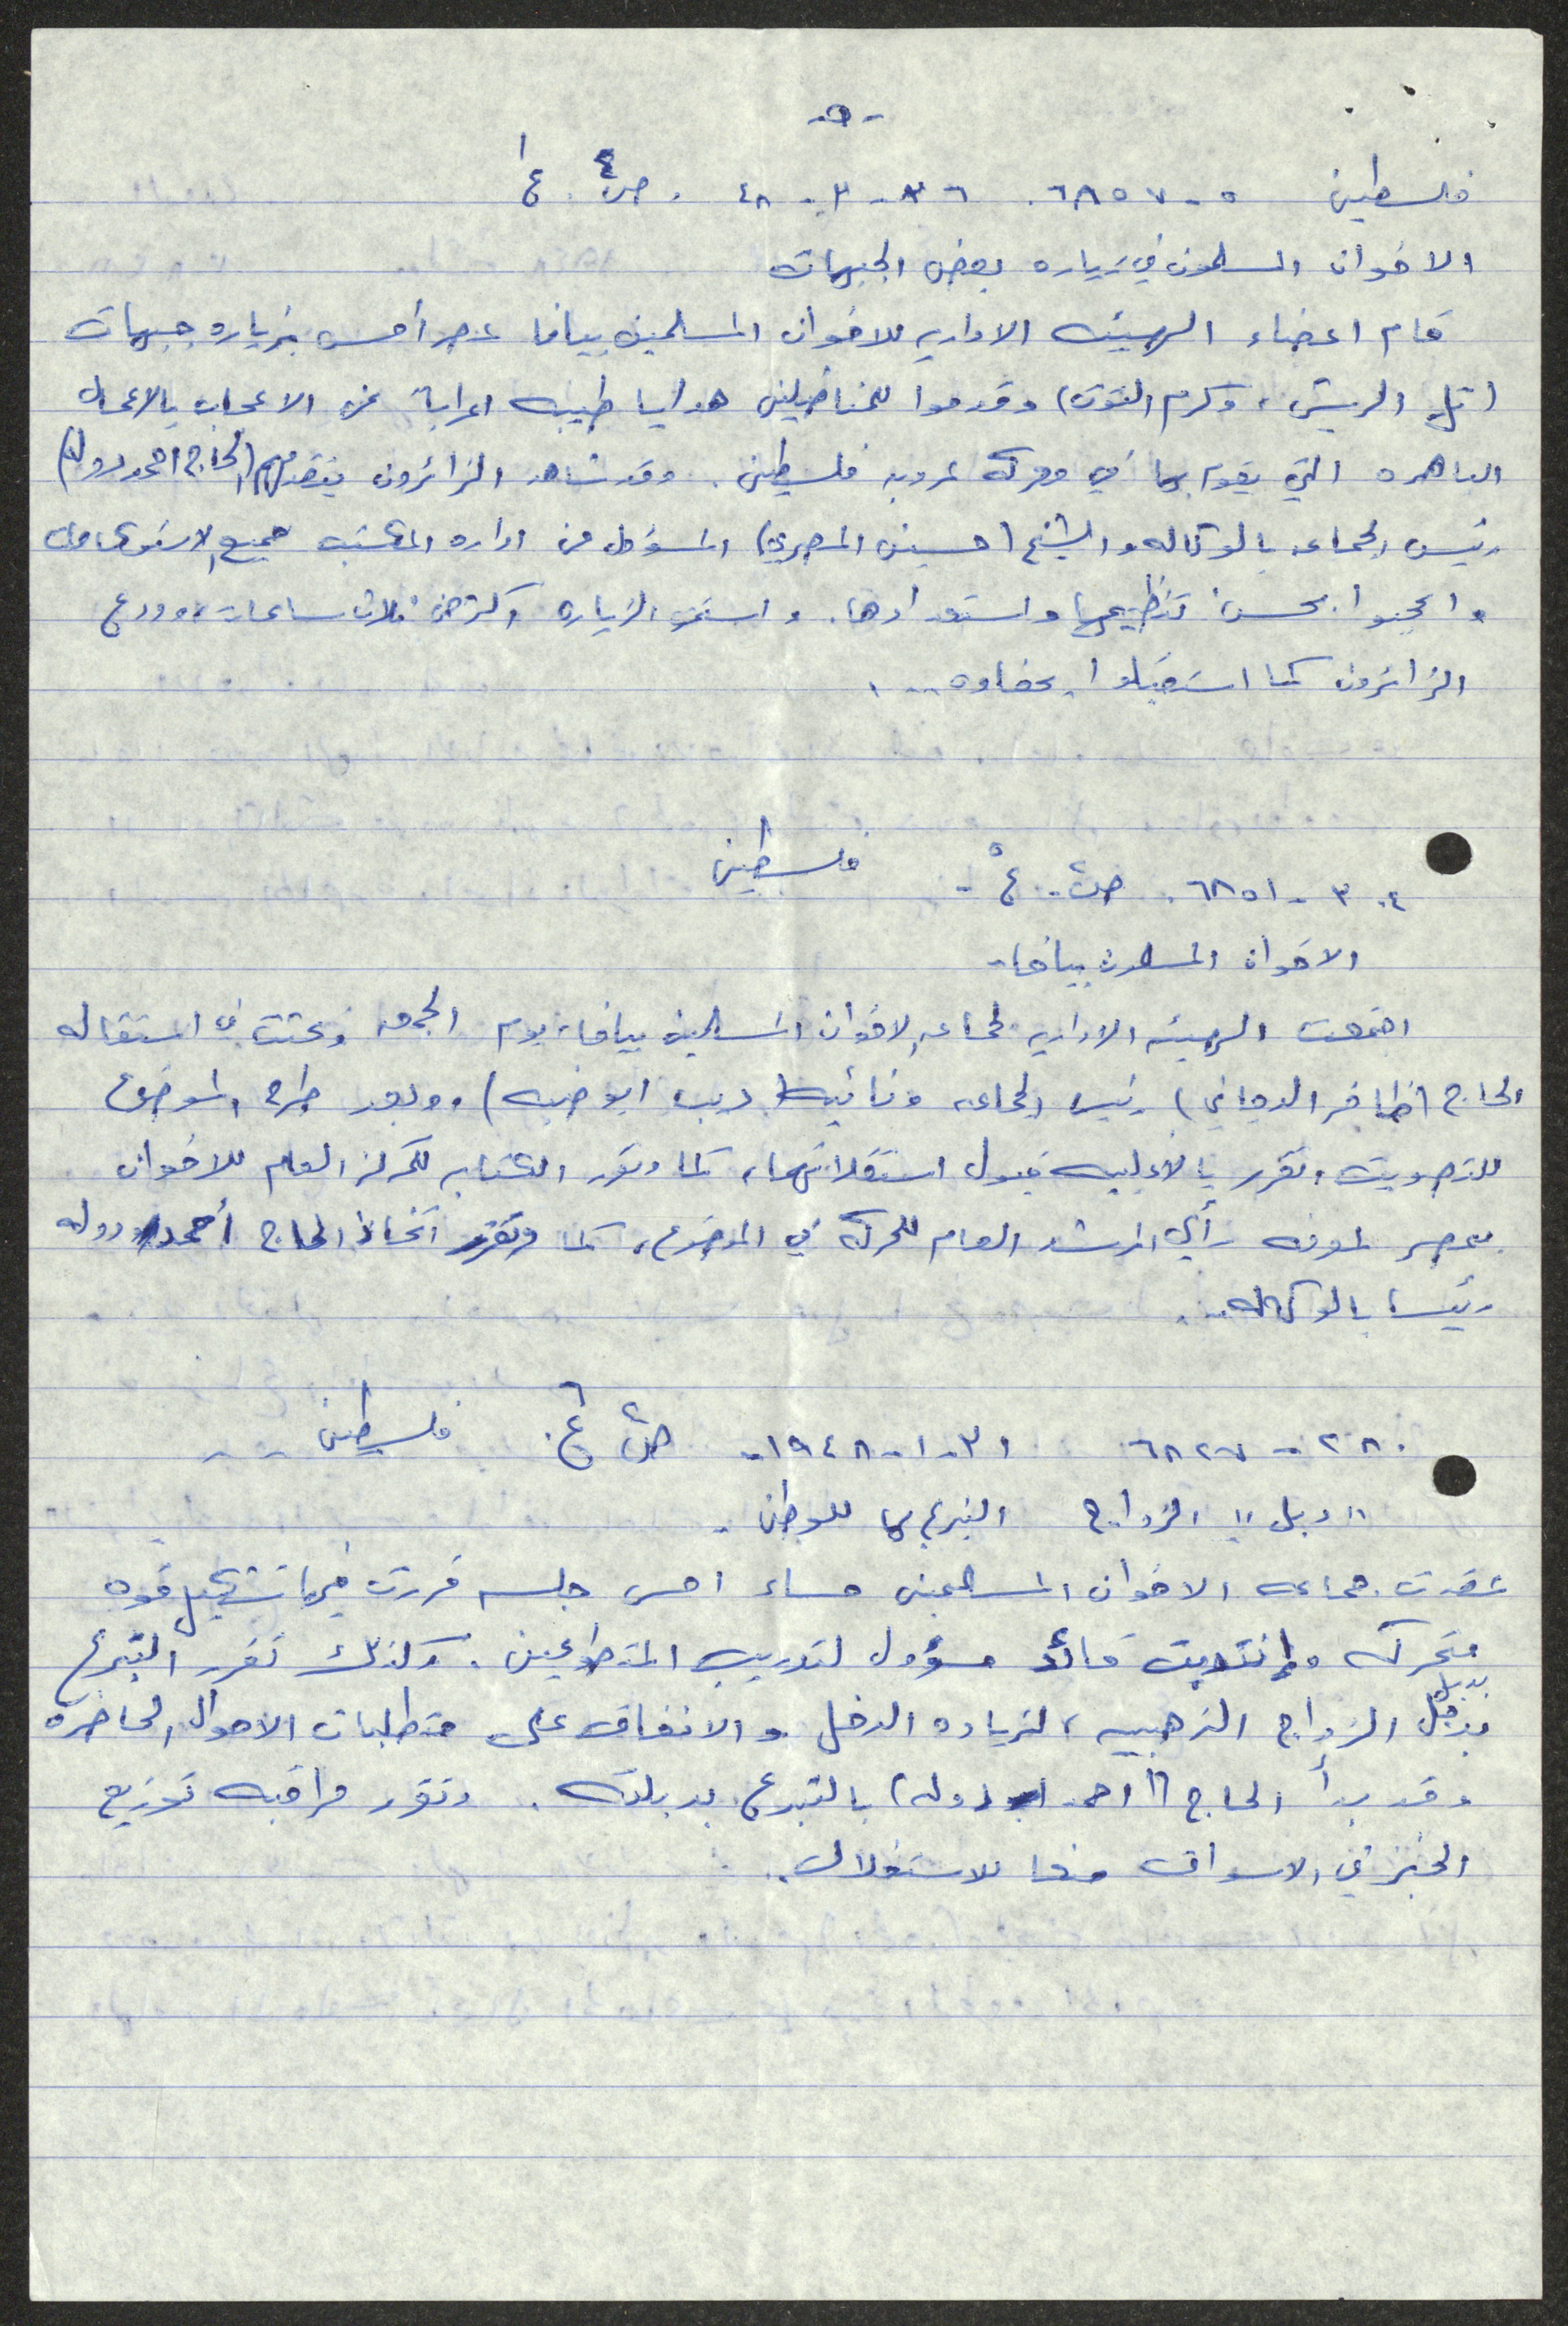 -٥-
فلسطين ٥-٦٨٥٧. ٢٦-٣-٤٨. ص٤. ع١
الاخوان المسلمون في زياره بعض الجبهات
قام اعضاء الهيئه الاداريه للاخوان المسلمين بيافا عصر أمس بزياره جبهات
(تل الريش، وكرم التوت) وقدموا للمناضلين هدايا طيبه اعرابا عن الاعجاب بالاعمال
الباهره التي يقوم بها في معركه عروبه فلسطين. وقد شاهد الزائرون يتقدمهم (الحاج احمد دوله)
رئيس الجماعه بالوكاله والشيخ (حسين المصري) المسؤول من اداره المكتبه جميع الاستحكامات
واعجبوا بحسن تنظيمها واستعدادها. واستمرت الزياره اكثر من ثلاث ساعات، وودع
الزائرون كما استقبلوا بحفاوه...
٣٠٤-٦٨٥١. ص٢. ع٥- فلسطين
الاخوان المسلمون بيافا-
اجتمعت الهيئه الاداريه لجماعه الاخوان المسلمين بيافا، يوم الجمعه وبحثت في استقاله
الحاج (ظافر الدجاني) رئيس الجماعه ونائبه (ديب ابو ضبه)، وبعد طرح الموضوع
للتصويت، تقرر بالاغلبيه قبول استقالاتهما، كما وتقرر الكتابه للمركز العام للاخوان
بمصر لمعرفه رأي المرشد العام للحركه في الموضوع، كما وتقرر اتخاذ الحاج أحمد دوله
رئيسا بالوكاله..
٢٨٠-٦٨٢٧ ٣١-١-١٩٤٨- ص٢ ع٦. فلسطين --
"دبل" الزواج التبرع بها للوطن.
عقدت جماعه الاخوان المسلمين مساء امس جلسه قررت فيها تشكيل قوه
متحركه وانتدبت قائد مسؤول لتدريب المتطوعين. وكذلك تقرر التبرع
بدبل الزواج الذهبيه، لزياده الدخل والانفاق على متطلبات الاحوال الحاضره
وقد بدأ الحاج (احمد دوله) بالتبرع بدبلته. وتقرر مراقبه توزيع
الخبز في الاسواق منعا للاستغلال..